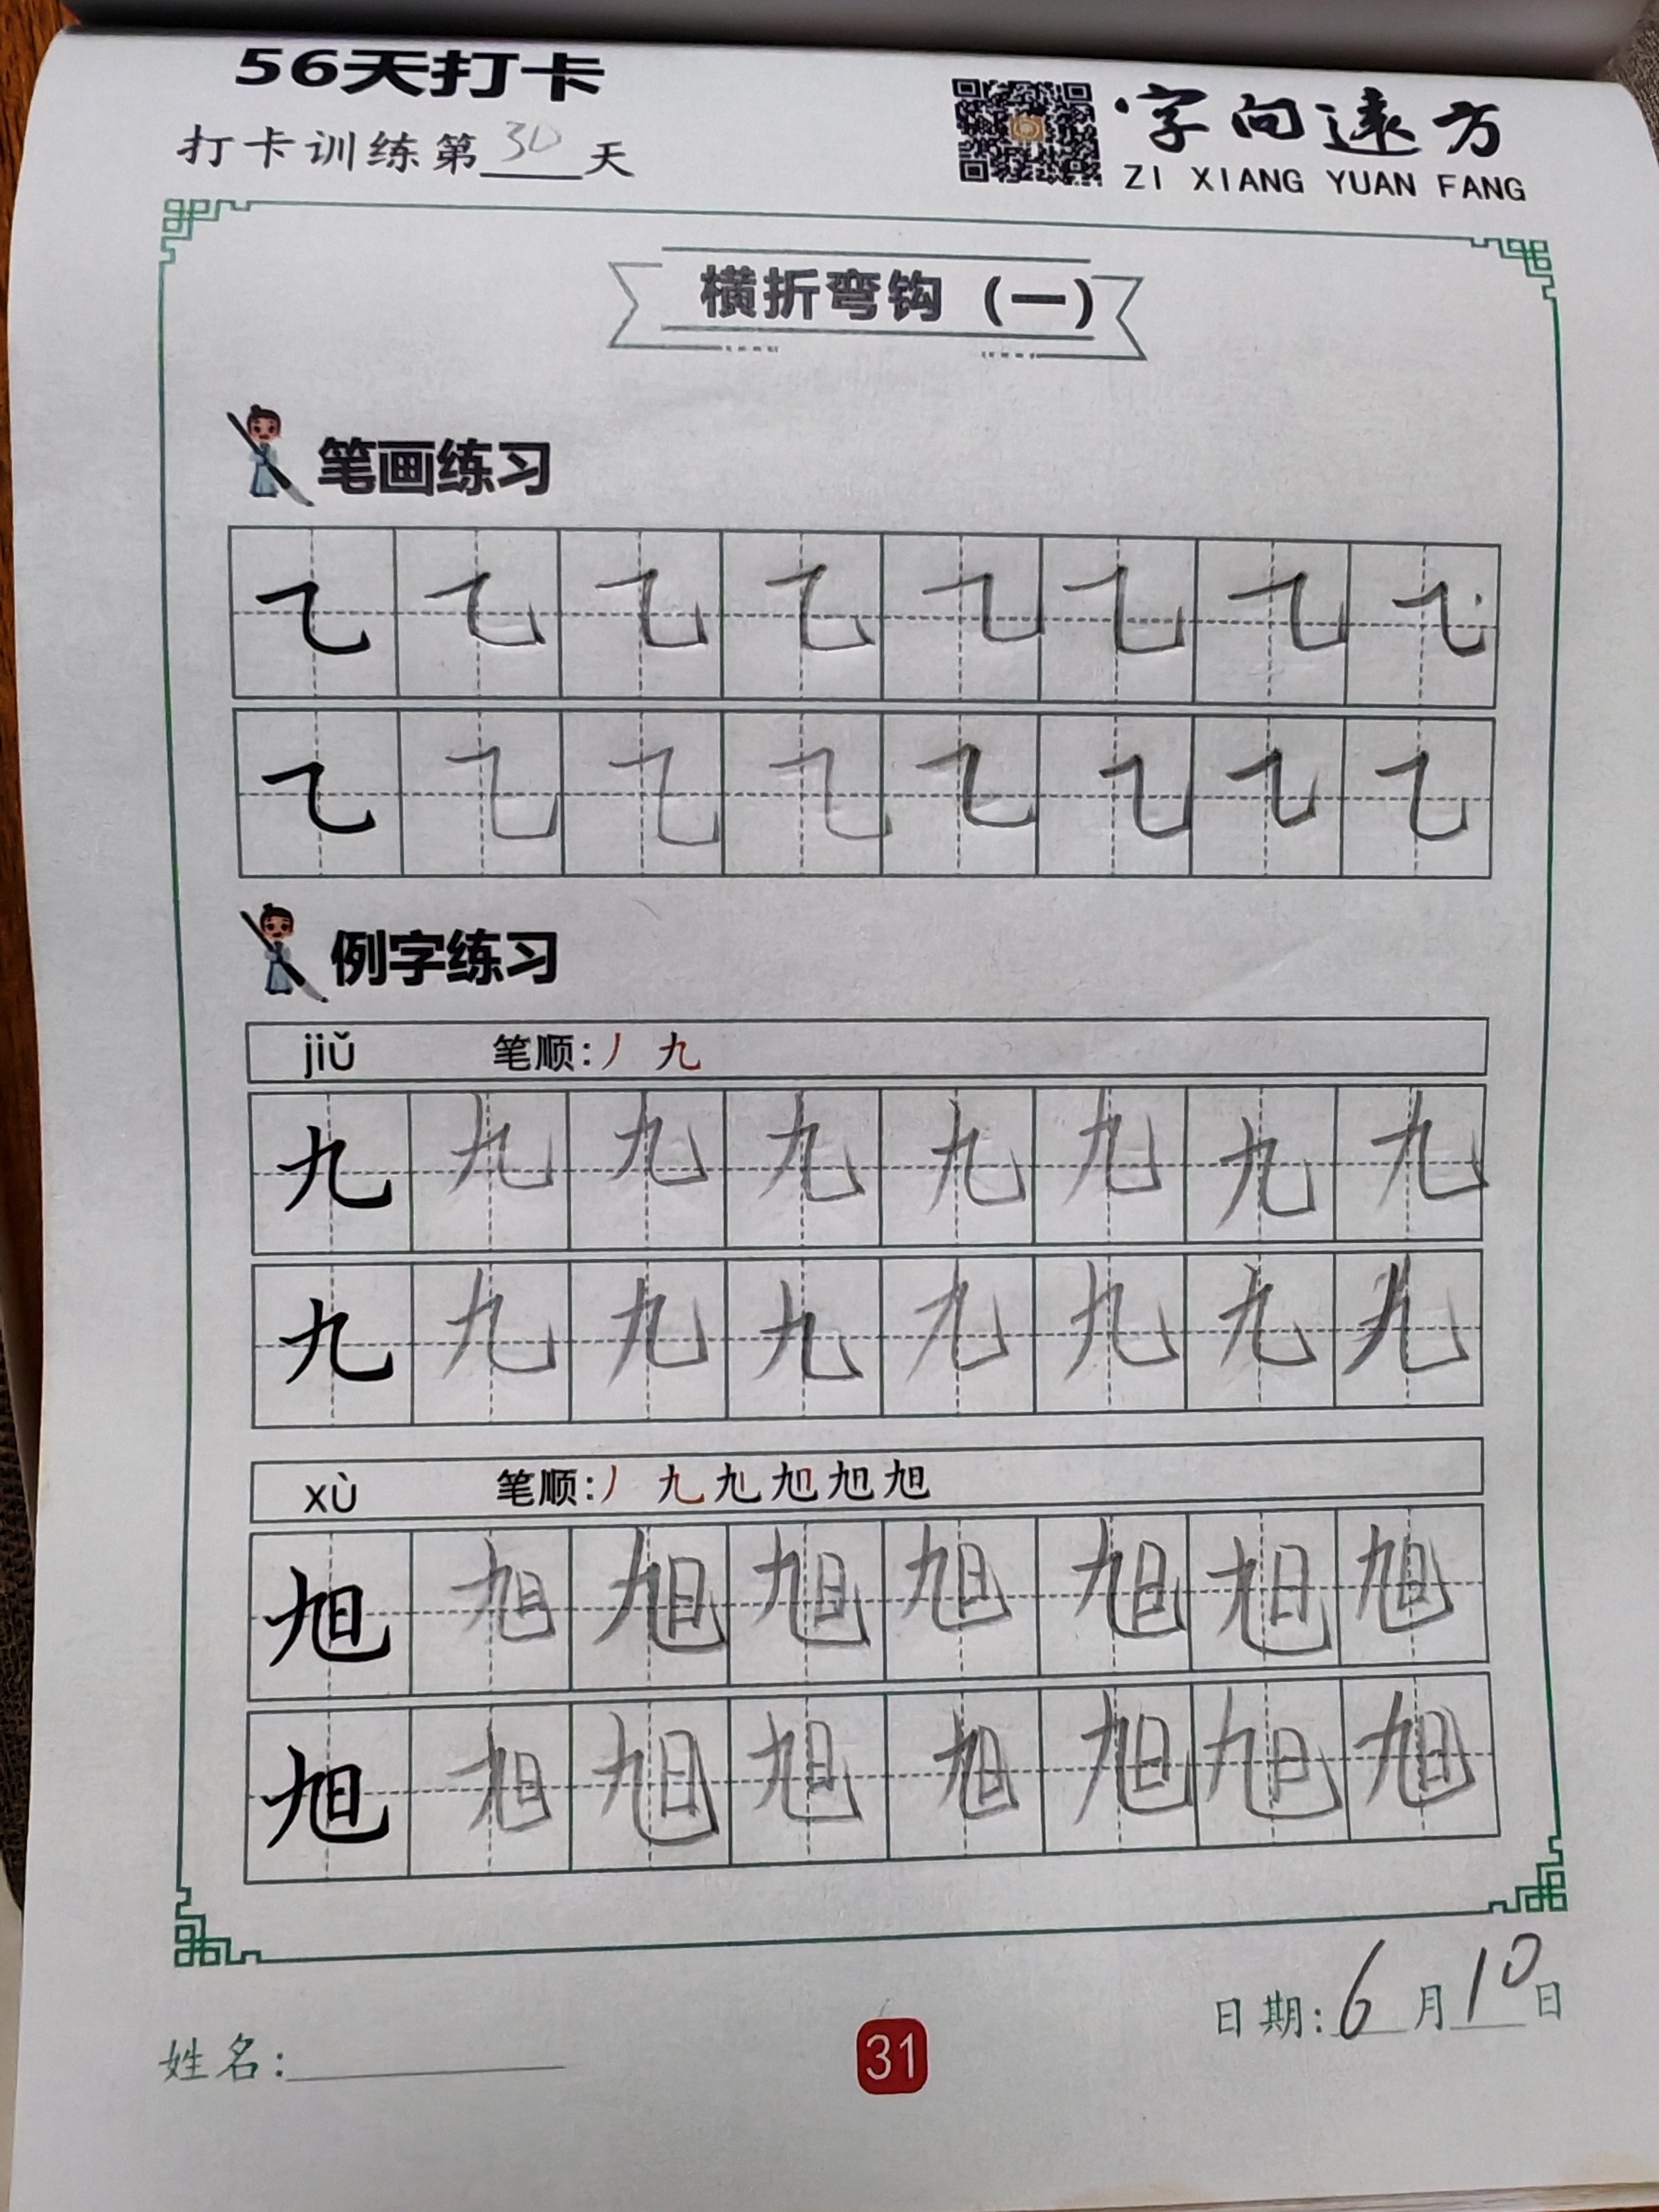 56天打卡
打卡训练第30天
字向远方
ZI XIANG YUAN FANG
横折弯钩（一）
笔画练习
㇈ ㇈ ㇈ ㇈ ㇈ ㇈ ㇈ ㇈
㇈ ㇈ ㇈ ㇈ ㇈ ㇈ ㇈ ㇈
例字练习
jiǔ 笔顺：丿 九
九 九 九 九 九 九 九 九
九 九 九 九 九 九 九 九
xù 笔顺：丿 九 旭 旭 旭 旭
旭 旭 旭 旭 旭 旭 旭 旭
旭 旭 旭 旭 旭 旭 旭 旭
日期：6月10日
姓名：
31